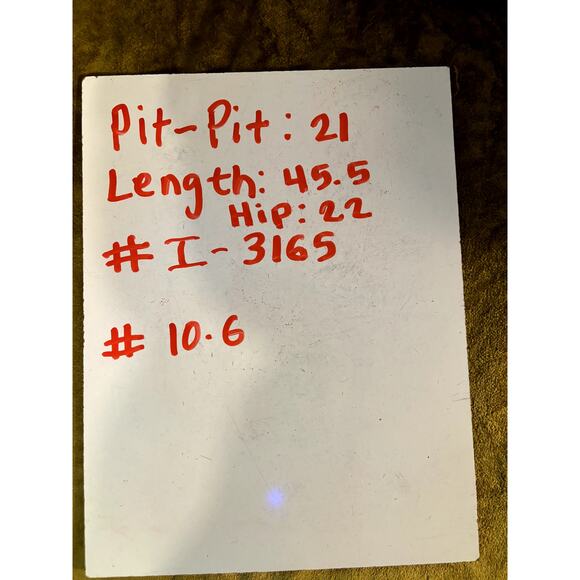 Pit-Pit: 21
Length: 45.5
Hip: 22
# I-3165
# 10.6